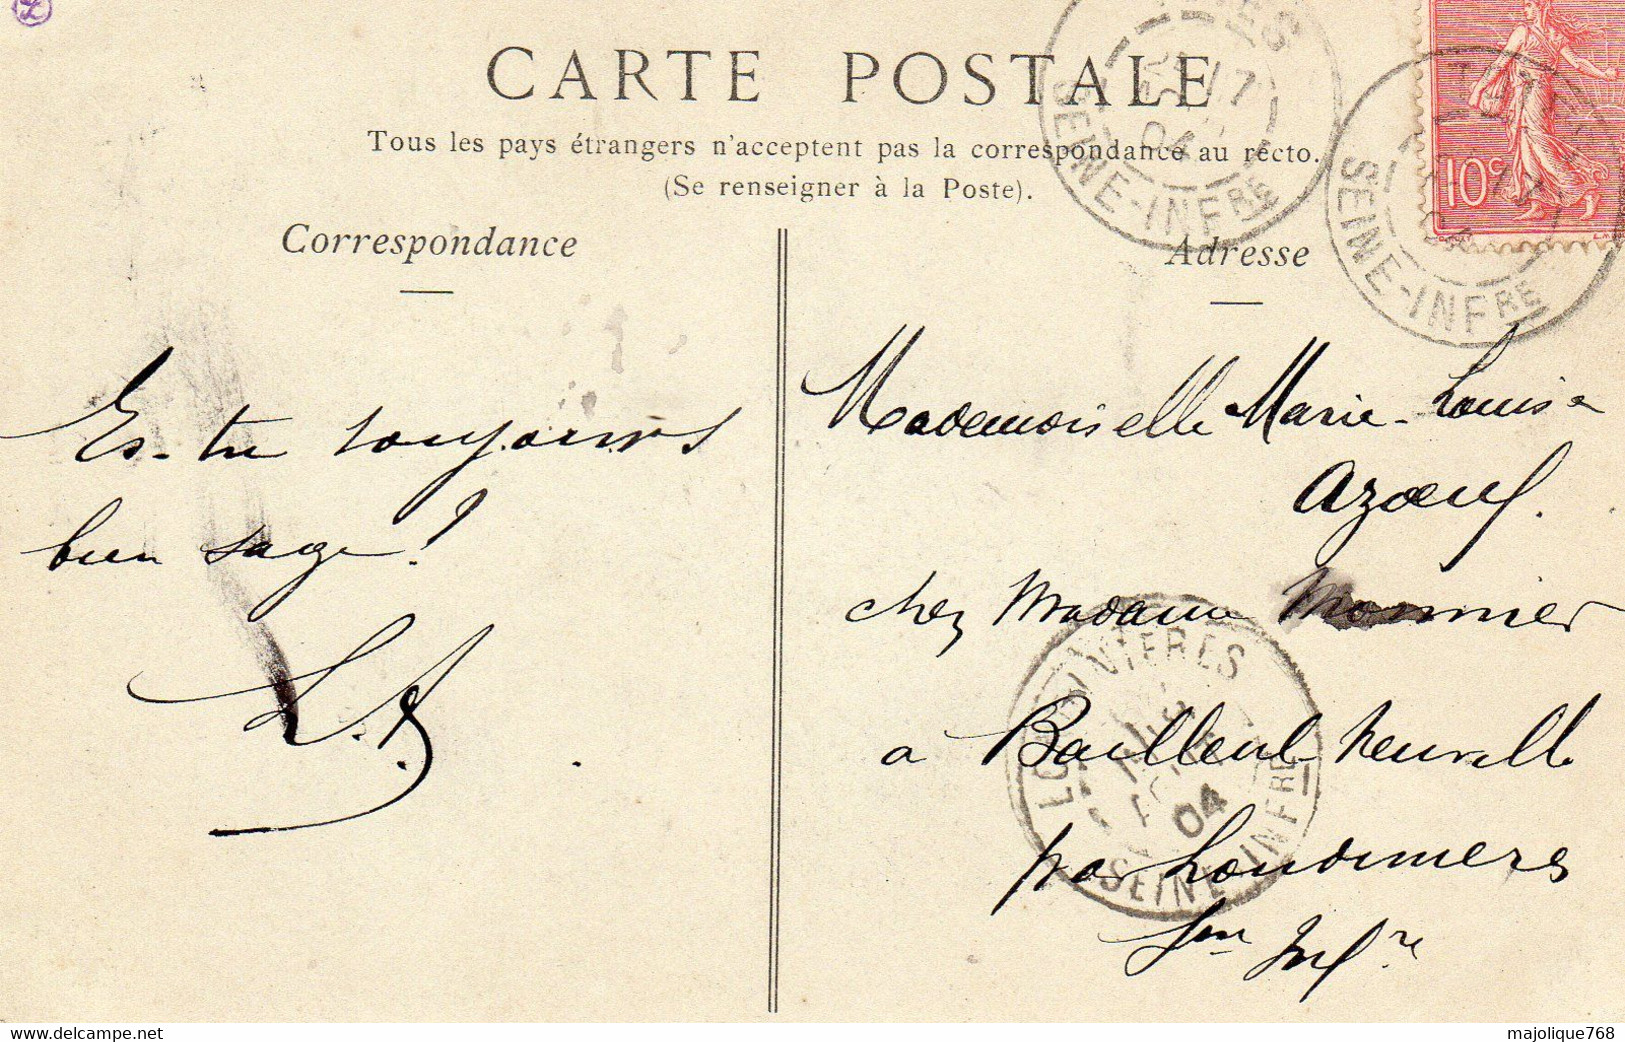 CARTE POSTALE
Tous les pays étrangers n'acceptent pas la correspondance au recto.
(Se renseigner à la Poste).
Correspondance
Adresse
10c
SEINE-INFRE
04
SEINE-INFRE
04
Es-tu toujours
bien sage?
L.A.
Mademoiselle Marie-Louise
Azoeuf.
chez Madame Monnier
a Bailleul-Neuville
par Londinières
Sein Infre
LONDINIERES
04
SEINE-INFRE
majolique768